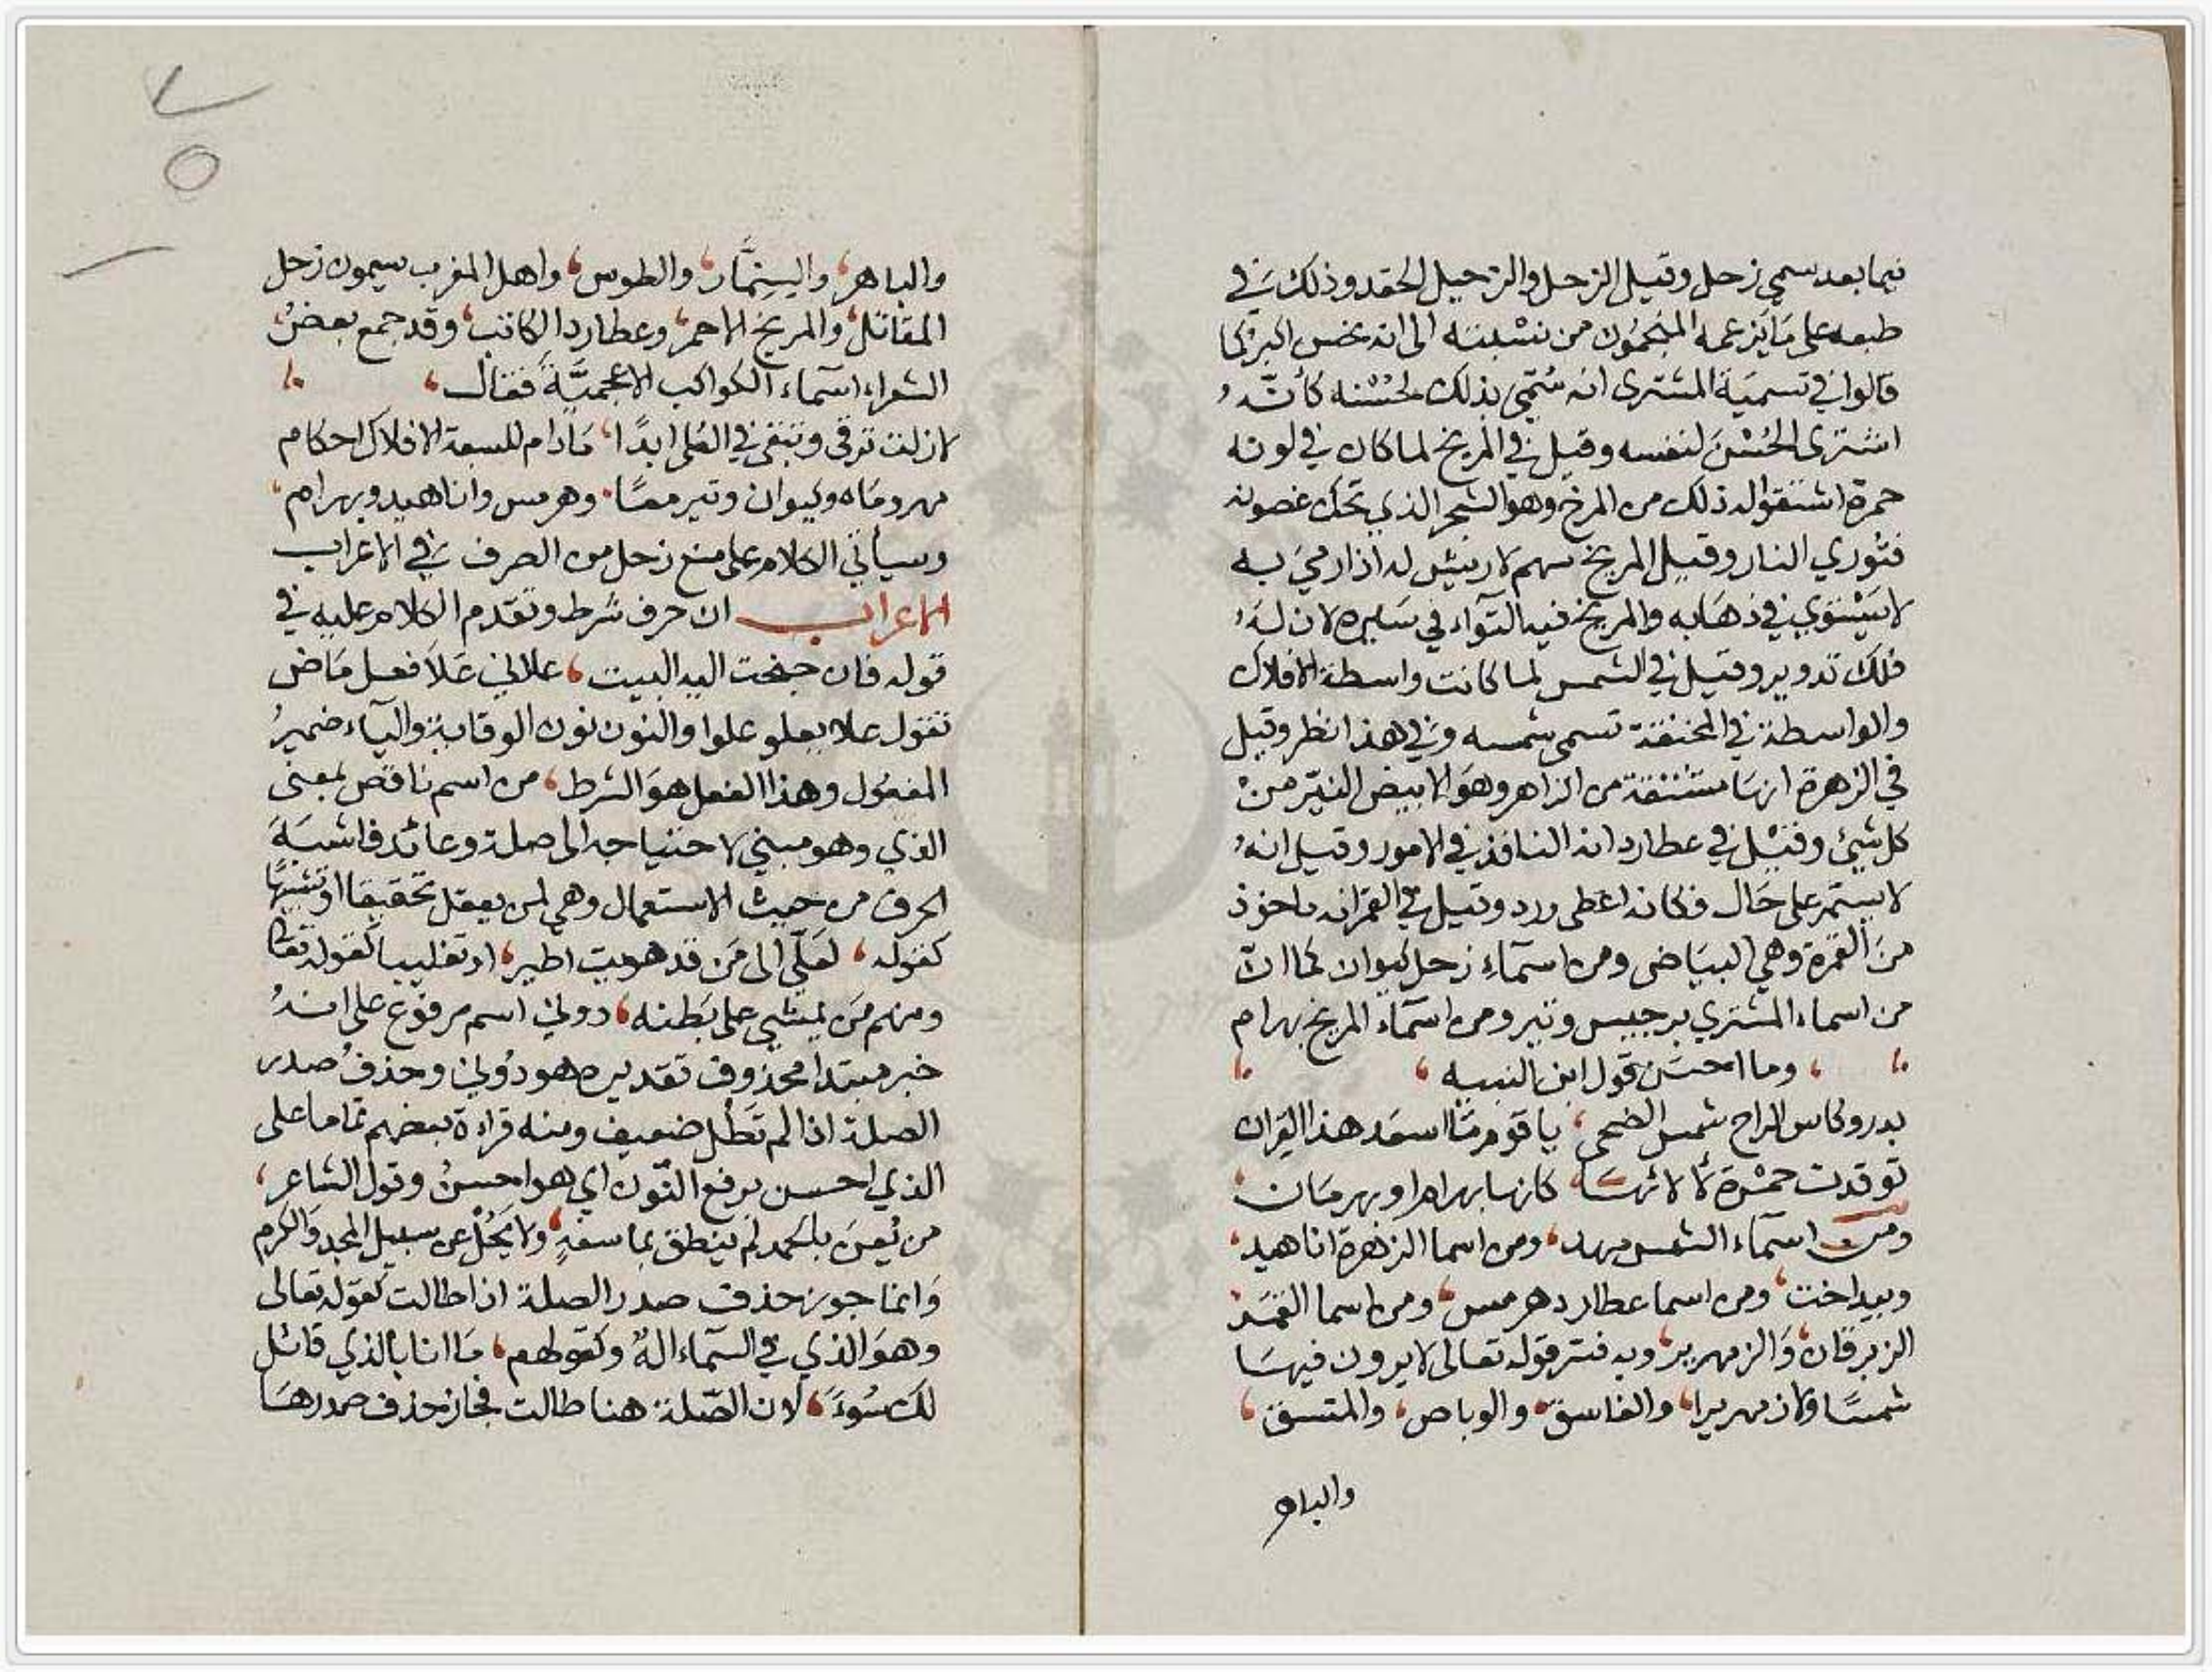 فيما بعد سمي زحل وقيل الزحل والزحيل الحقد وذلك في
طبعه على مَا يَزعمه المنجمُون من نسْبته الى انه نحس اكبر كما
قالوا في تسميَة المشترى انه سُمّي بذلك لحُسْنه كأنّهُ
اشترى الحُسْنَ لنفسه وقيل في المريخ لما كان في لونه
حمرة اشتقوا له ذلك من المرخ وهو الشجر الذي تحك غصونه
فتوري النار وقيل المريخ سهم لا ريش له اذا رميَ به
لا يَسْتوي في ذهَابه والمريخ فيه التوآء في سَيره لان لهُ
فلك تدوير وقيل في الشمس لما كانت واسطة الافلاك
والواسطة في المخنقة تسمى شمسه وفي هذا نظر وقيل
في الزهرة انهَا مشتقة من الزاهر وهوَ الابيض النيّر منْ
كل شيئ وقيْل في عطارد انه النافذ في الامور وقيل انهُ
لا يستمر على حَال فكانه اعطى ورد وقيل في القمر انه ماخوذ
منَ القمرة وهي البيَاض ومن اسمآء زحل كيوان كما انّ
من اسماء المشتري برجيس وتير ومن اسمآء المريخ بهرام
وما احسَن قول ابن النبيه
بدر وكاس الراح شمس الضحى يا قوم مَا اسعَد هذا القِران
توقدت حمْرة لألائهَا كانها بهرام او بهرمَان
ومن اسمآء الشمس مهر ومن اسما الزهرة اناهيد
وبيداخت ومن اسما عطارد هرمس ومن اسما القمَر
الزبرقان وَالزمهرير وبه فسّر قوله تعالى لا يرون فيهَا
شمسًا ولا زمهريرا والغاسق والوباص والمتسق
والباهر
والباهر والسِنِمَّار والطوس واهل المغرب يسمون زحل
المقاتل والمريخ الاحمر وعطارد الكاتب وقد جمع بعضُ
الشعراء اسمآء الكواكب الاعجميَّةَ فقال
لا زلت ترقى وتبقى في العُلى ابدًا مَا دام للسبعة الافلاك احكام
مهر ومَاه وكيوان وتير معًا وهرمس واناهيد وبهرام
وسيأتي الكلام على منع زحل من الصرف في الاعراب
الاعراب ان حرف شرط وتقدم الكلام عليه في
قوله فان جنحت اليه البيت علاني عَلاَ فعل مَاض
تقول علا يعلو علوا والنون نون الوقاية واليآء ضميرُ
المفعُول وهذا الفعل هوَ الشرط من اسم ناقص بمعنى
الذي وهو مبني لاحتياجه الى صلة وعائد فاشبَهَ
الحرف من حيث الاستعمال وهي لمن يعقل تحقيقا او تشبيهًا
كقوله لعَلّي الى مَن قد هويت اطير او تغليبا كقوله تعالى
ومنهم مَن يمشي على بَطنه دوني اسم مرفوع على انهُ
خبر مبتدا محذوف تقديره هو دُوني وحذفُ صدر
الصلة اذا لم تَطُل ضعيف ومنه قراءة بعضهم تماما على
الذي احسن برفع النّون اي هو احسنُ وقول الشاعر
من يُعنَ بالحمد لم ينطق بما سفهٍ ولا يَحُلْ عن سبيل المجد وَالكرم
وَانما جوز حذف صدر الصلة اذا طالت كقوله تعالى
وهوَ الذي في السّماء الهٌ وكقولهم مَا انا بالذي قائل
لكَ سُوءًَ لان الصّلة هنا طالت فجاز حذف صدرهَا